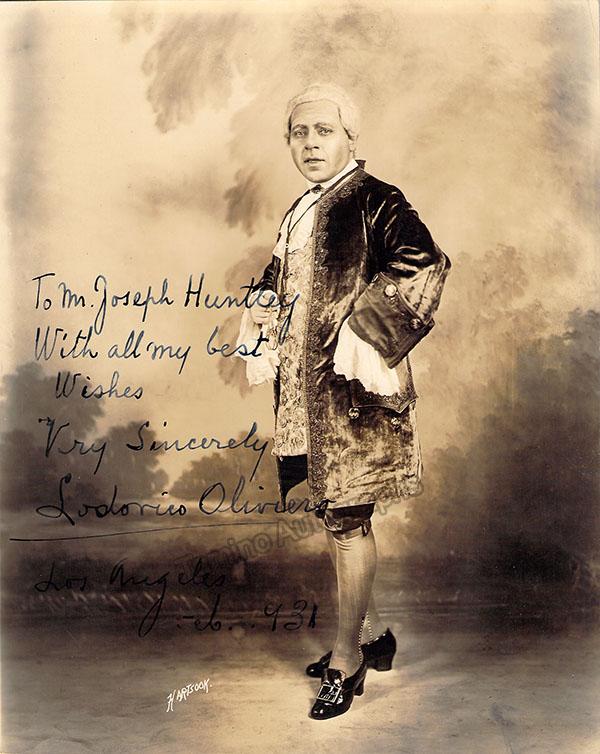 To Mr. Joseph Huntley
With all my best
Wishes
Very Sincerely
Lodovico Oliviero
Los Angeles
Feb. 931
HARTSOOK.